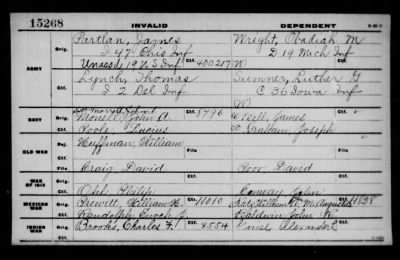 15268 INVALID DEPENDENT
ARMY
Orig. Partlan, James Wright, Obadiah M
I 47 Ohio Inf D 19 Mich Inf
Ctf. 19 U S Inf Ctf. 400217 (W)
Orig. Lynch, Thomas Sumner, Luther G
I 2 Del Inf C 36 Iowa Inf
Ctf. (W)
NAVY
Orig. John A. Ctf. 8796 James
Ctf. Poole, Lucius Graham, Joseph
OLD WAR
Rej. Huffman, William
File File
WAR OF 1812
Craig, David Poor, David
Orig. Odel, Philip Conway, John
MEXICAN WAR
Prewitt, William H. Ctf. 11010 William Augusta Ctf. 11898
Randolph, Enoch J. Baldwin, John
INDIAN WAR
Orig. Brooks, Charles F. Ctf. 8554 Alexander
Ctf.